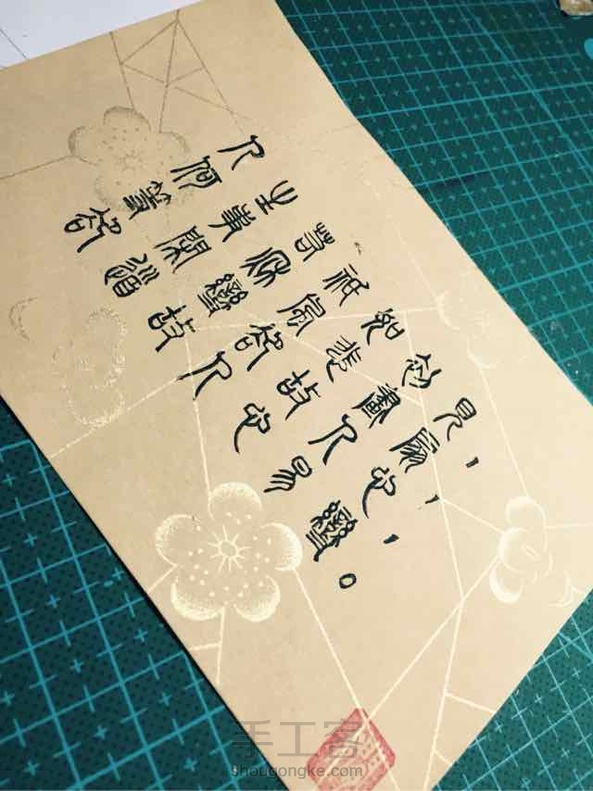 人生若祇如初見，
何事秋風悲畫扇，
等閑變卻故人心，
卻道故人心易變。
手工客
shougongke.com